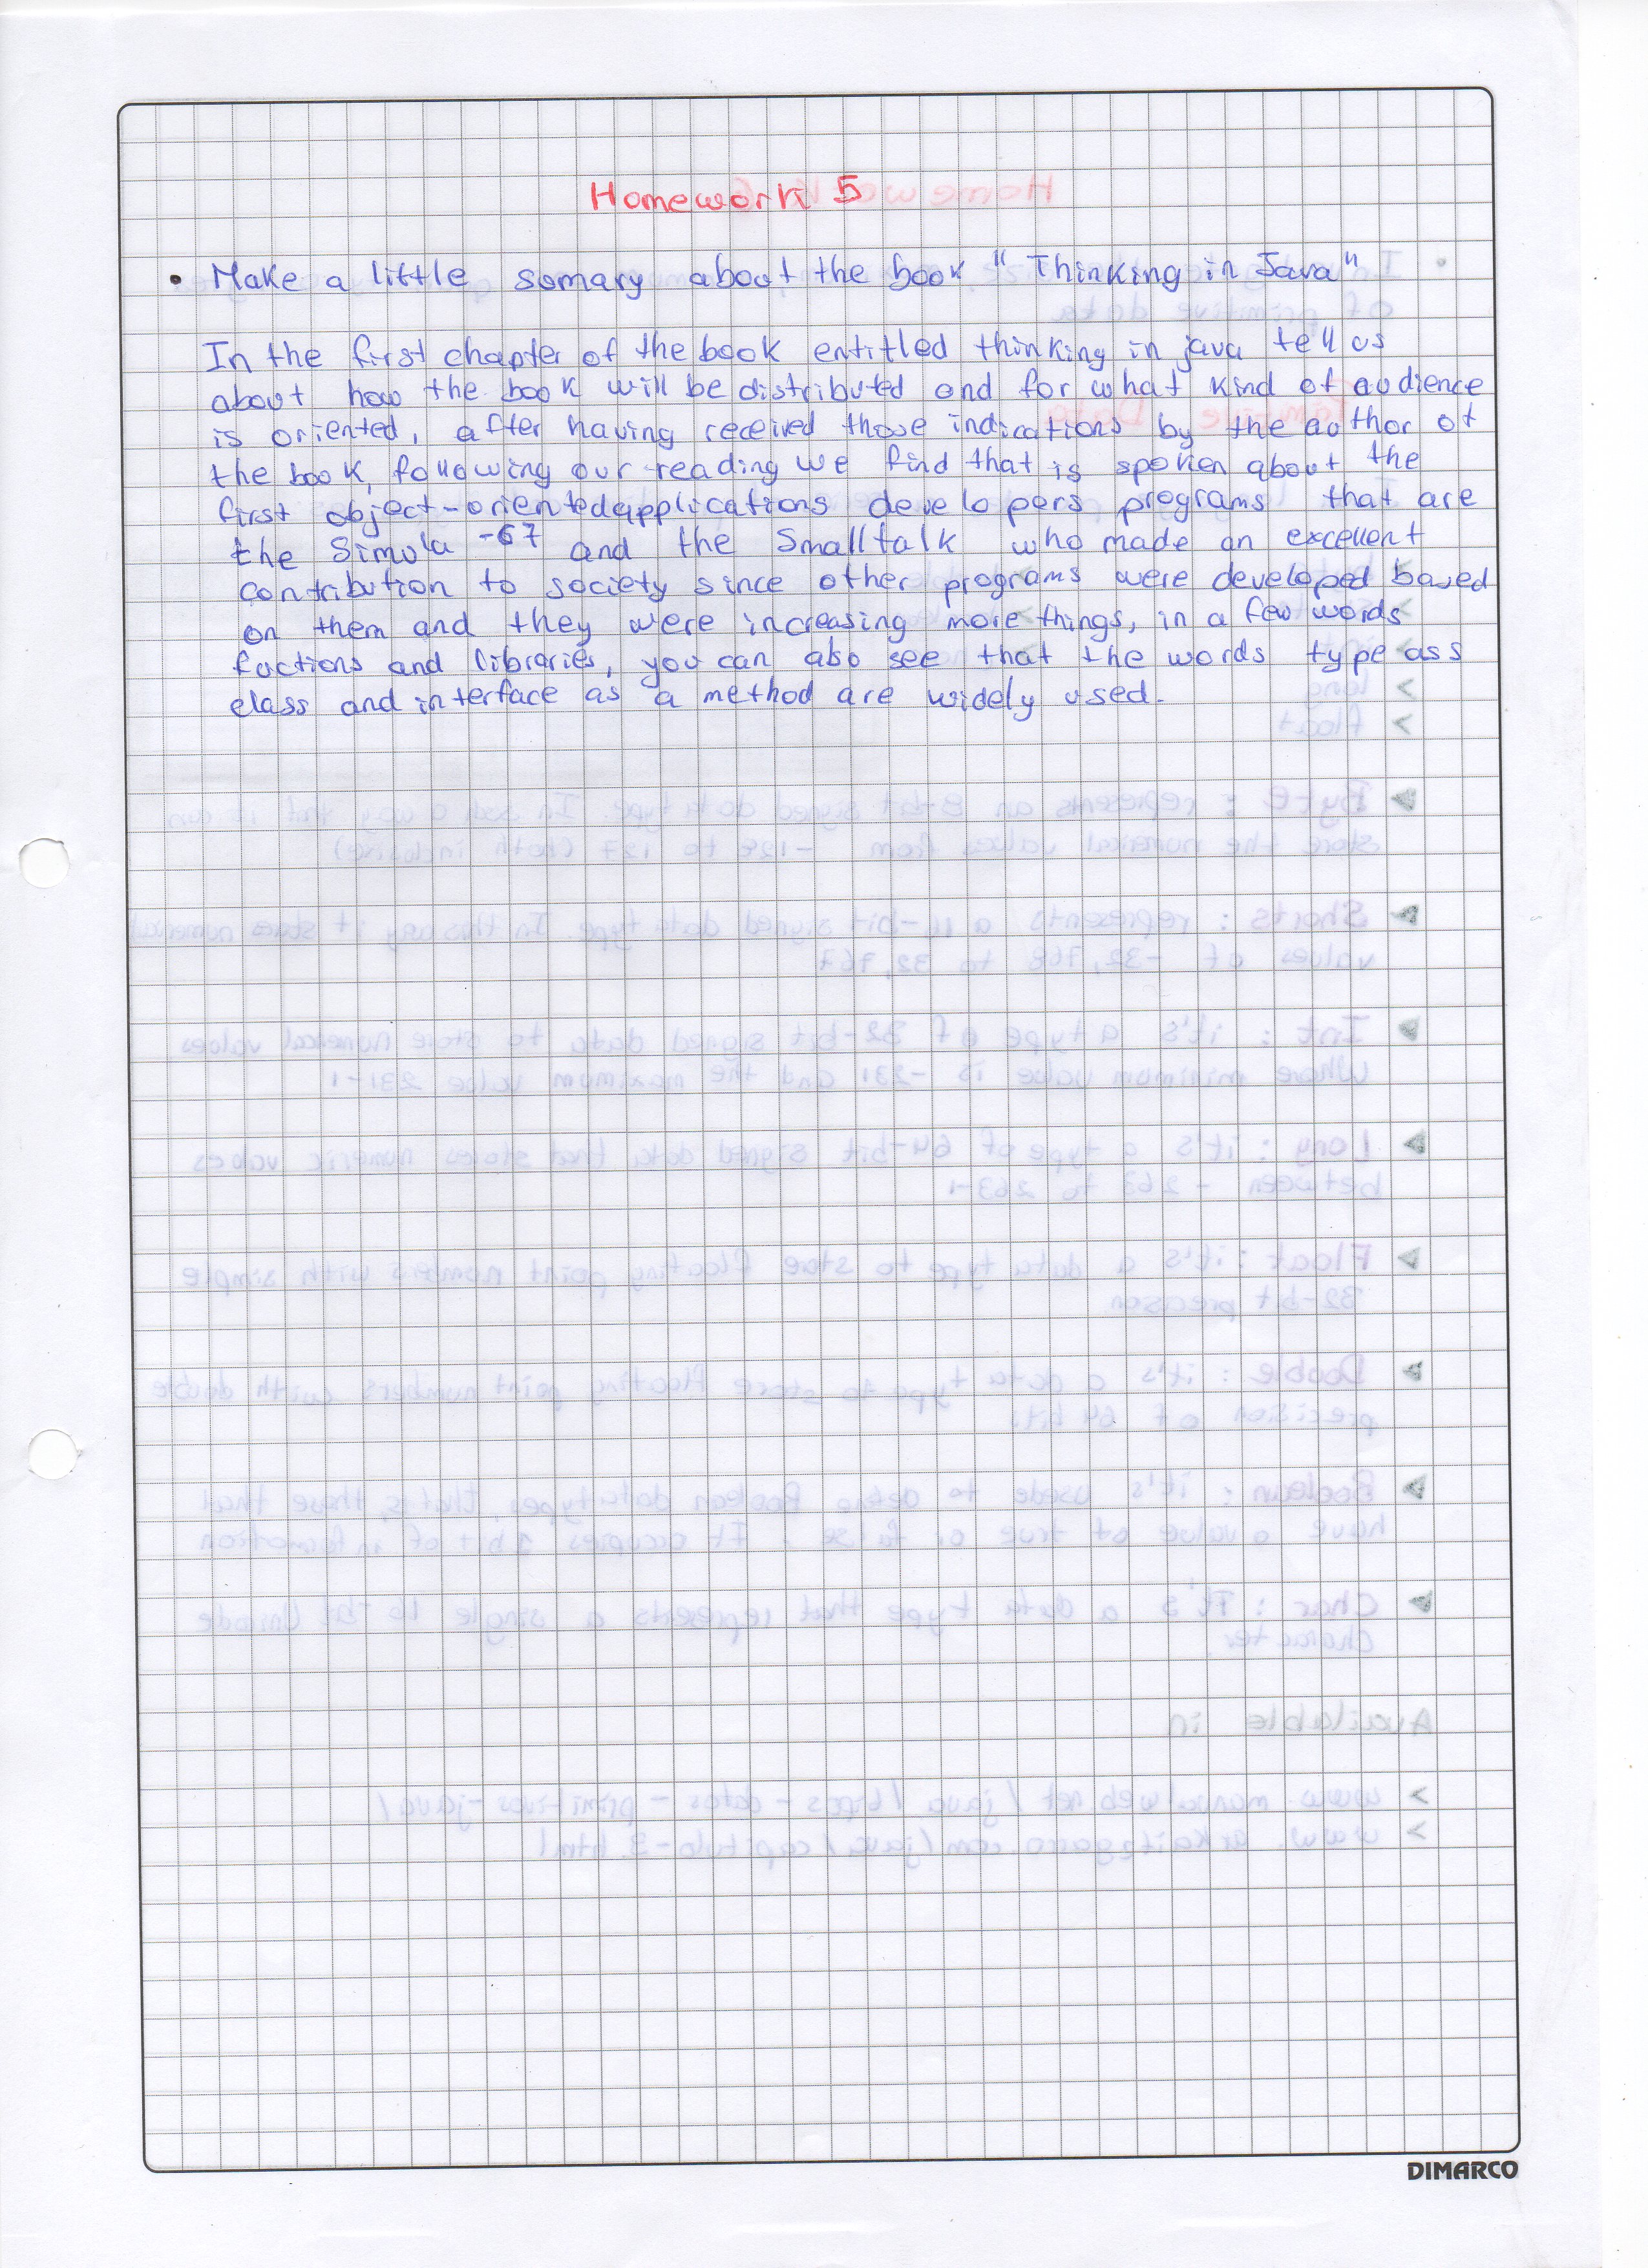 Homework 5
• Make a little somary about the book "Thinking in Java"
In the first chapter of the book entitled thinking in java tell us
about how the book will be distributed and for what kind of audience
is oriented, after having received those indications by the author of
the book, following our reading we find that is spoken about the
first object-oriented applications developers programs that are
the Simula -67 and the Smalltalk who made an excellent
contribution to society since other programs were developed based
on them and they were increasing more things, in a few words
fuctions and libraries, you can also see that the words type ass
class and interface as a method are widely used.
DIMARCO